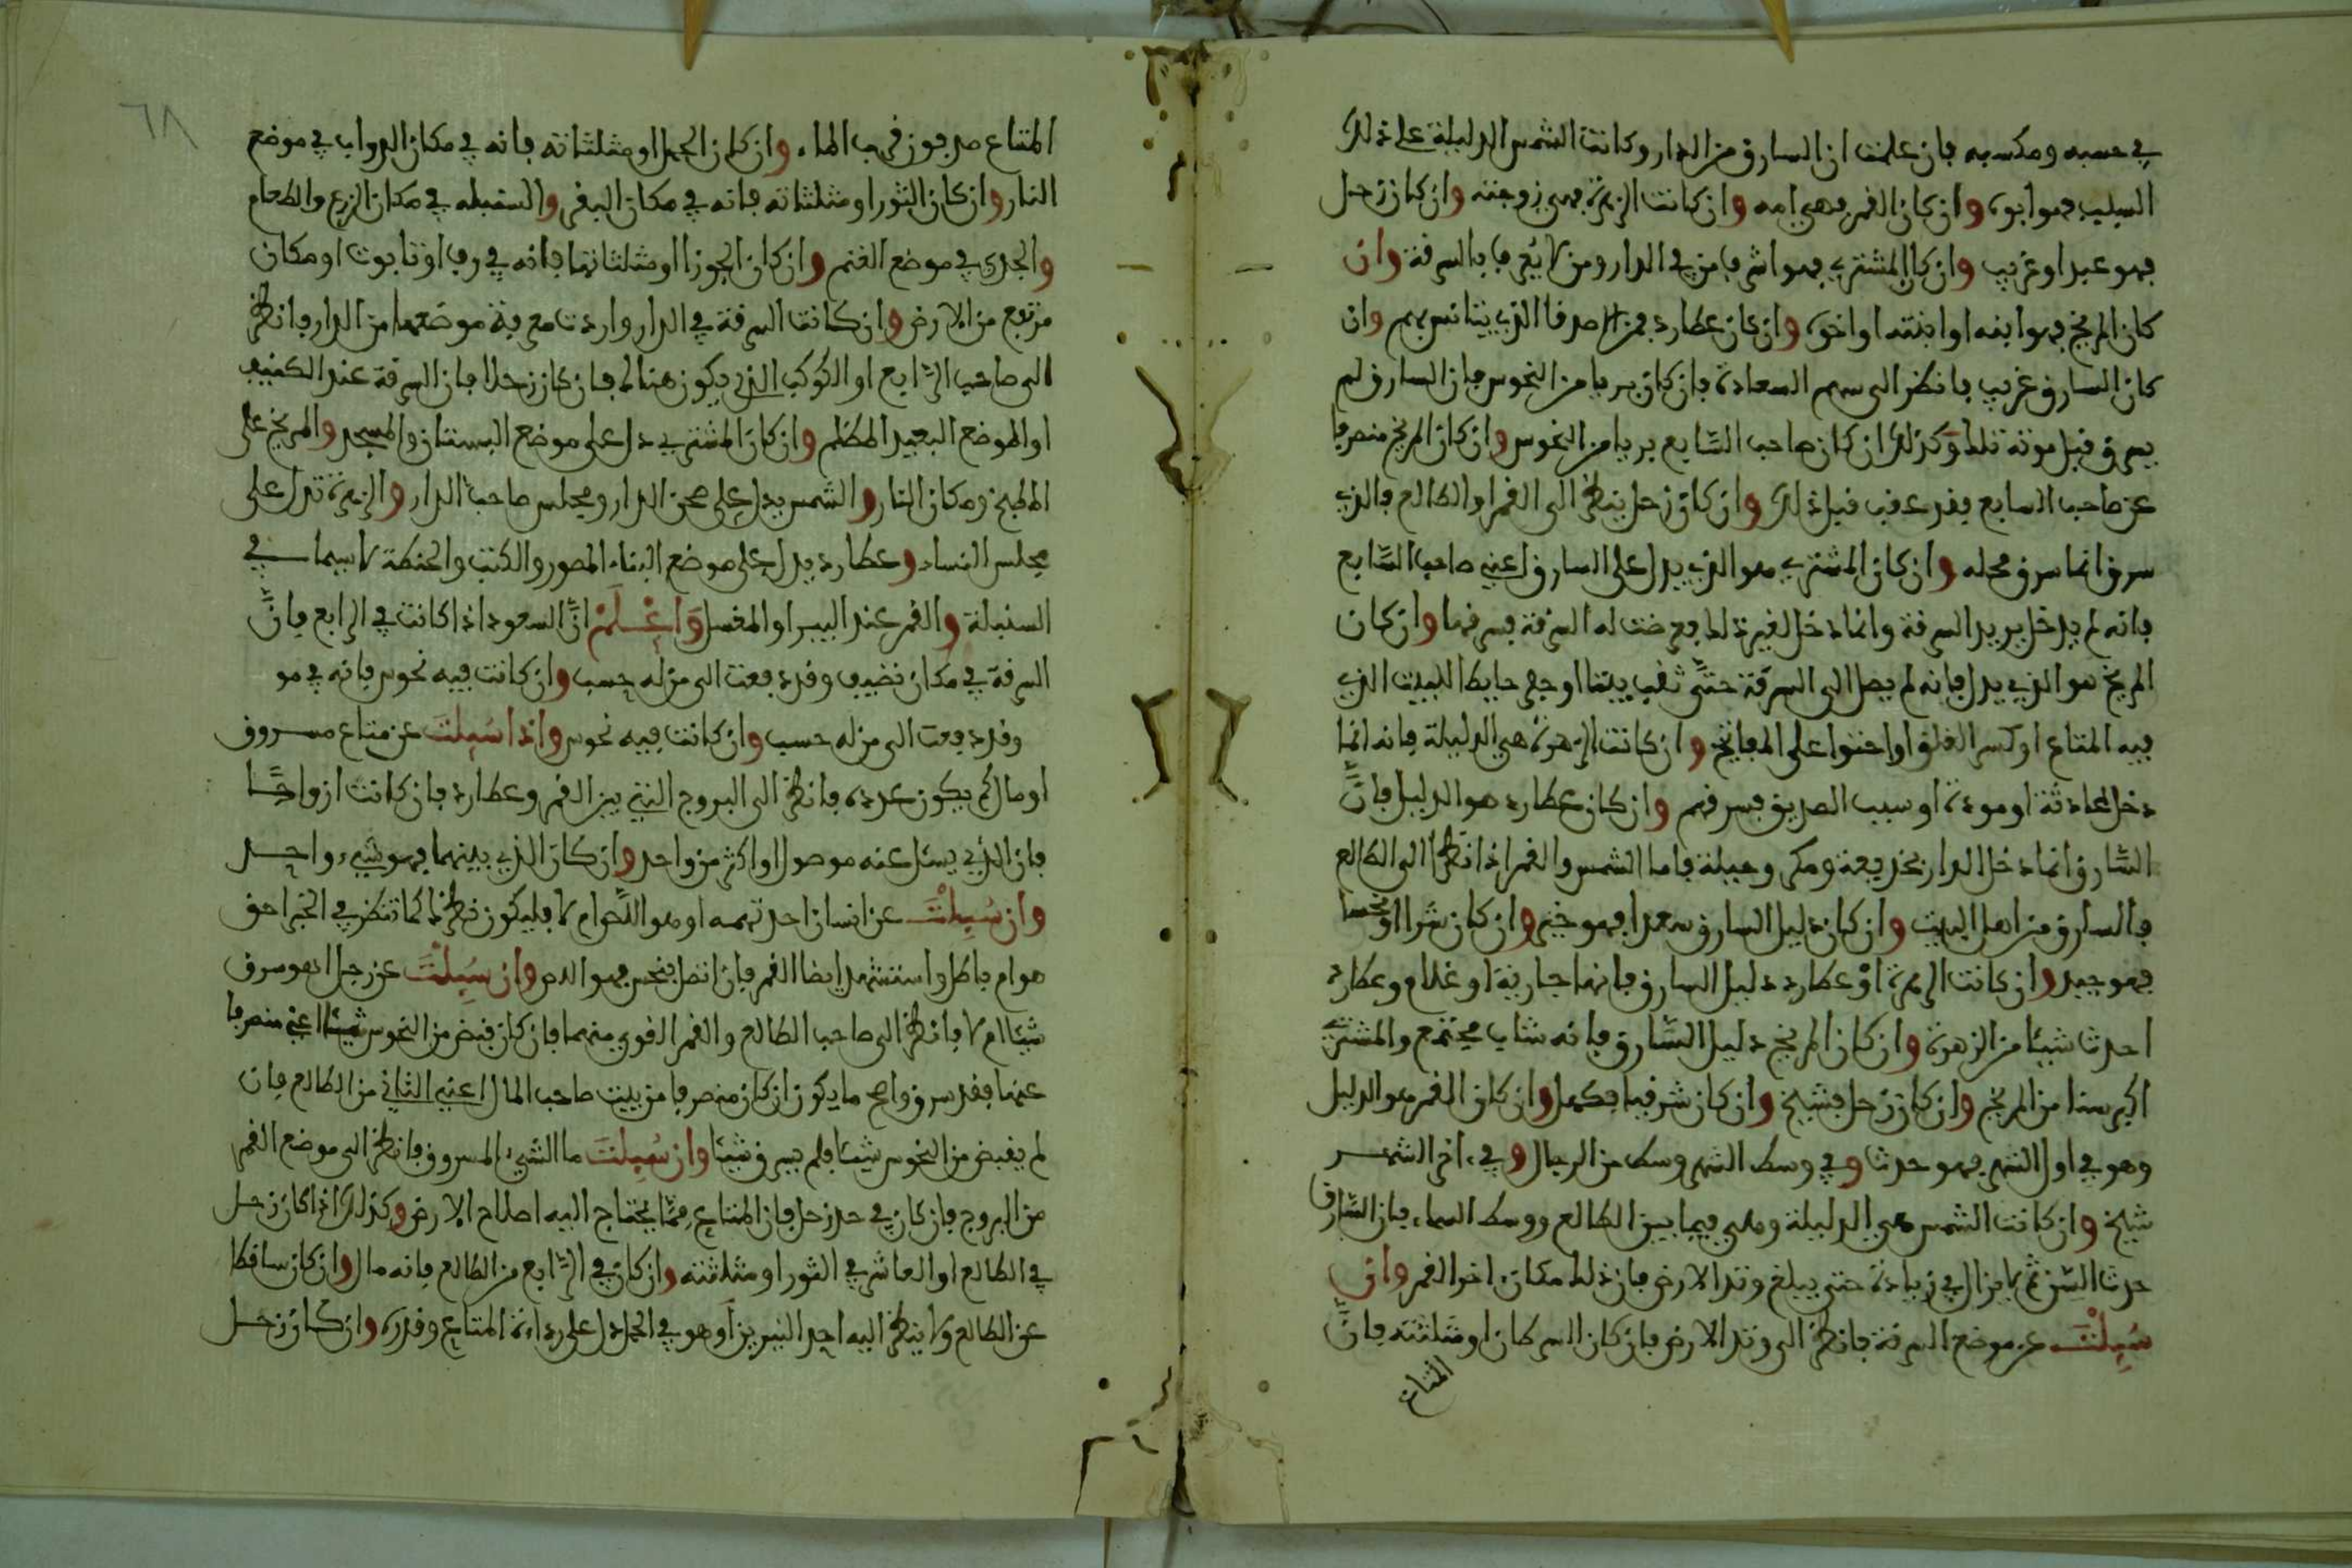 في حسبه ومكسبه فان علمت ان السارق من الدار وكانت الشمس الدليلة على ذلك
السليب فهو ابوه وان كان القمر فهي امه وان كانت الزهرة فهي زوجته وان كان زحل
فهو عبد او غريب وان كان المشتري فهو اشرف من في الدار ومن لا يعرف بالسرقة وان
كان المريخ فهو ابنه او ابنته او اخوه وان كان عطارد فمن اصدقا الذي يتانس بهم وان
كان السارق غريب فانظر الى سهم السعادة فان كان بريا من النحوس فان السارق لم
يسرق قبل موته تلك وكذلك ان كان صاحب السابع بريا من النحوس وان كان المريخ منصرفا
عن صاحب السابع فقد عوقب قبل ذلك وان كان زحل ينظر الى القمر او الطالع فالذي
سرق انما سرق محله وان كان المشتري هو الذي يدل على السارق اعني صاحب السابع
فانه لم يدخل يريد السرقة وانما دخل لغير ذلك فعرضت له السرقة فسرقها وان كان
المريخ هو الذي يدل فانه لم يصل الى السرقة حتى ثقب بيتا او حفر حايط البيت الذي
فيه المتاع او كسر الغلق او احتوا على المفاتح وان كانت الزهرة هي الدليلة فانه انما
دخل لمحادثة او مودة او سبب الصديق فسرقهم وان كان عطارد هو الدليل فان
السارق انما دخل الدار بخديعة ومكر وحيلة فاما الشمس والقمر اذا نظرا الى الطالع
فالسارق من اهل البيت وان كان دليل السارق سعدا فهو خير وان كان شرا او نحسا
فهو جيد وان كانت الزهرة او عطارد دليل السارق فانها جارية او غلام وعطارد
احدث شيئا من الزهرة وان كان المريخ دليل السارق فانه شاب مجتمع والمشتري
اكبر سنا من المريخ وان كان زحل فشيخ وان كان شرقيا فكهل وان كان القمر هو الدليل
وهو في اول الشهر فهو حدث وفي وسط الشهر وسط من الرجال وفي اخر الشهر
شيخ وان كانت الشمس هي الدليلة وهي فيما بين الطالع ووسط السماء فان السارق
حدث السن ثم لا يزال في زيادة حتى يبلغ وتد الارض فان ذلك مكان اخر القمر وان
سيلت عن موضع السرقة فانظر الى وتد الارض فان كان السرطان او مثلثته فان
المتاع
٦٨
المتاع مدفون قرب الماء وان كان الحمل او مثلثاته فانه في مكان الدواب في موضع
النار وان كان الثور او مثلثاته فانه في مكان البقر والسنبله في مكان الزرع والطعام
والجدي في موضع الغنم وان كان الجوزا او مثلثاتها فانه في رف او تابوت او مكان
مرتفع من الارض وان كانت السرقة في الدار واردت معرفة موضعها من الدار فانظر
الى صاحب الرابع او الكوكب الذي يكون هنالك فان كان زحلا فان السرقة عند الكنيف
او الموضع البعيد المظلم وان كان المشتري دل على موضع البستان والمسجد والمريخ على
المطبخ ومكان النار والشمس يدل على صحن الدار ومجلس صاحب الدار والزهرة تدل على
مجلس النساء وعطارد يدل على موضع البناء المصور والكتب والحنطة لا سيما في
السنبلة والقمر عند البير او المغسل واعلم ان السعود اذا كانت في الرابع فان
السرقة في مكان نضيف وقد دفعت الى منزله حسب وان كانت فيه نحوس فانه في مو
وقد دفعت الى منزله حسب وان كانت فيه نحوس واذا سيلت عن متاع مسروق
او مال كم يكون عدده فانظر الى البروج التي بين القمر وعطارد فان كانت ازواجا
فان الذي يسئل عنه موصول او اكثر من واحد وان كان الذي بينهما فهو شيء واحد
وان سيلت عن انسان احد تهمه او هو اللص ام لا فليكون نظرك كما تنظر في الخبر احق
هو ام باطل واستشهد ايضا القمر فان اتصل بنحس فهو اللص وان سيلت عن رجل اهو سرق
شيئا ام لا فانظر الى صاحب الطالع والقمر القوي منهما فان كان قبض من النحوس شيئا اعني منصرفا
عنها فقد سرق واصح ما يكون ان كان منصرفا من بيت صاحب المال اعني الثاني من الطالع فان
لم يقبض من النحوس شيئا فلم يسرق شيئا وان سيلت ما الشيء المسروق فانظر الى موضع القمر
من البروج فان كان في حد زحل فان المتاع مما يحتاج اليه اصلاح الارض وكذلك اذا كان زحل
في الطالع او العاشر في الثور او مثلثته وان كان في الرابع من الطالع فانه مال وان كان ساقطا
عن الطالع ولا ينظر اليه احد النيرين او هو في الحمل دل على رداءة المتاع وقدره وان كان زحل